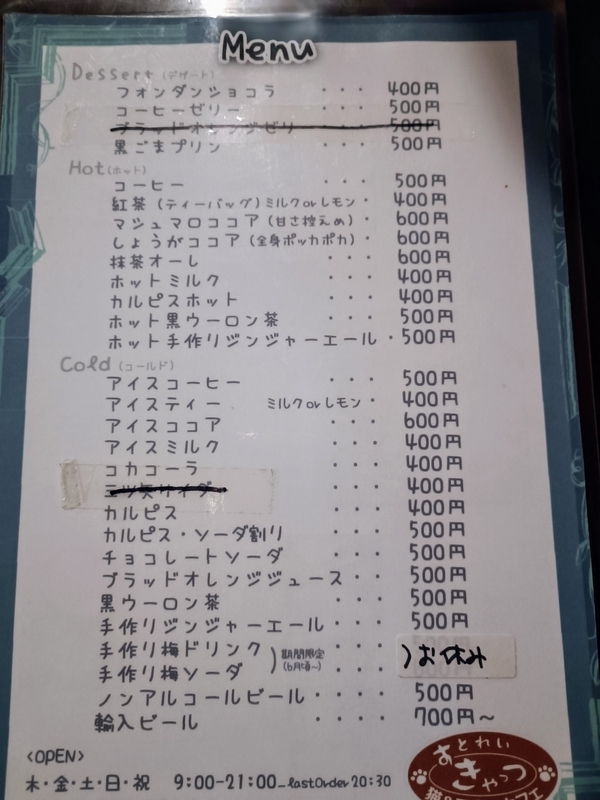 Menu
Dessert (デザート)
フォンダンショコラ ・・・ 400円
コーヒーゼリー ・・・ 500円
ブラッドオレンジゼリー ・・・ 500円
黒ごまプリン ・・・ 500円
Hot (ホット)
コーヒー ・・・ 500円
紅茶 (ティーバッグ) ミルクorレモン・ 400円
マシュマロココア (甘さ控えめ)・ 600円
しょうがココア (全身ポッカポカ) 600円
抹茶オーレ ・・・ 600円
ホットミルク ・・・ 400円
カルピスホット ・・・ 400円
ホット黒ウーロン茶 ・・・ 500円
ホット手作りジンジャーエール・500円
Cold (コールド)
アイスコーヒー ・・・ 500円
アイスティー ミルクorレモン・ 400円
アイスココア ・・・ 600円
アイスミルク ・・・ 400円
コカコーラ ・・・ 400円
三ツ矢サイダー ・・・ 400円
カルピス ・・・ 400円
カルピス・ソーダ割り ・・・ 500円
チョコレートソーダ ・・・ 500円
ブラッドオレンジジュース・・・ 500円
黒ウーロン茶 ・・・ 500円
手作りジンジャーエール・・・ 500円
手作り梅ドリンク
手作り梅ソーダ
) 期間限定
(6月頃~)
) お休み
ノンアルコールビール・・・・ 500円
輸入ビール ・・・・ 700円~
<OPEN>
木・金・土・日・祝 9:00-21:00_lastOrder 20:30
あとれい
きゃっつ